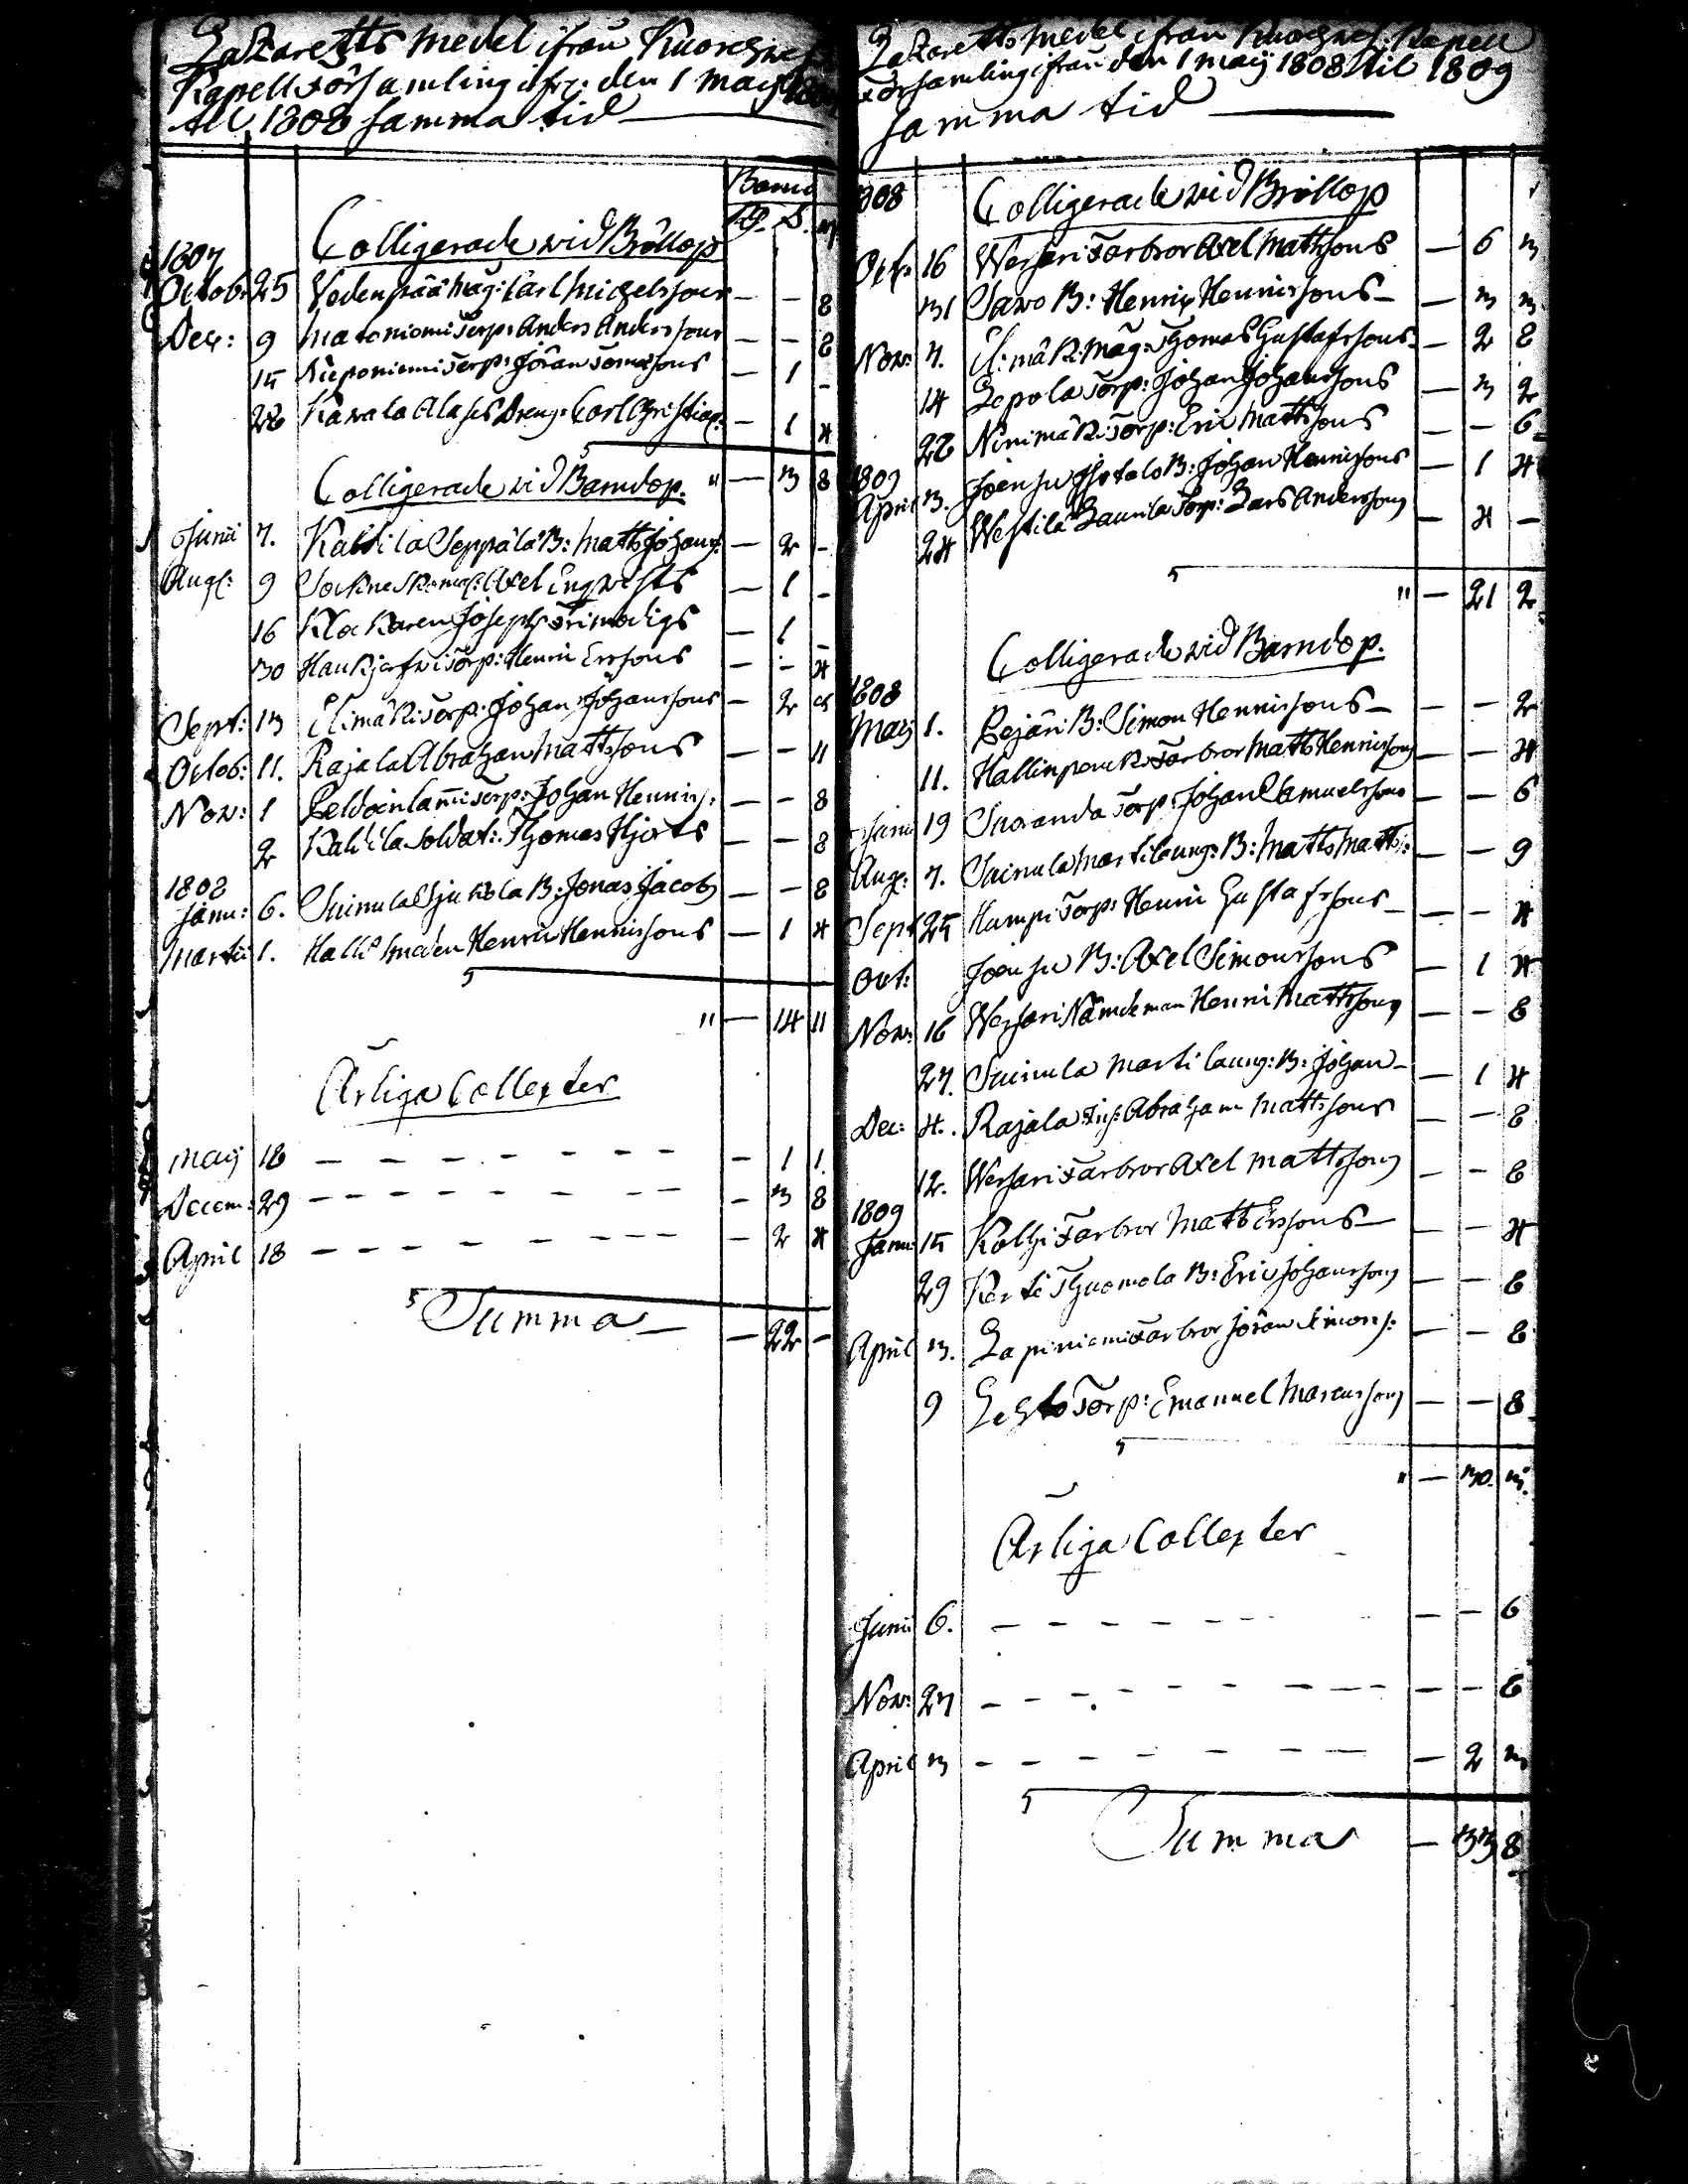 Lazaretts Medel ifrån Kuorehwesi
Kapell Församling ifr: den 1 Maij 1807
till 1808 samma tid
Banco
Rd. S. rp
1807 Colligerade wid Bröllop
Octob: 25 Vedenpää Mag: Carl Michelssons — — 8
Dec: 9 Matoniemi Torp: Anders Anderssons — — 8
15 Neponiemi Torp: Jöran Tomassons — 1 —
26 Kawala Alases Dreng: Carl Christias: — 1 4
Colligerade wid Barndop. " — 3 8
Junii 7. Kattila Seppälä B: Matts Johans: — 2 —
Aug: 9 Sockneskomak: Axel Engwists — 1 —
16 Klockaren Joseph Trimodigs — 1 —
30 Haukjärfwi Torp: Henric Ersons — — 4
Sept: 13 Elimäki Torp: Johan Johanssons — 2
Octob: 11. Rajala Abraham Mattssons — — 11
Nov: 1 Peldoinlami Torp: Johan Henrics: — — 8
2 Kattila Soldat: Thomas Hjorts — — 8
1808
Janu: 6. Suinula Sjukola B: Jonas Jacobs — — 8
Martii 1. Halli Smeden Henric Henricssons — 1 4
" — 14 11
Årliga Collecter
Maij 18 — — — — — — — — 1 1
Decem: 29 — — — — — — — — 3 8
April 18 — — — — — — — — 2 4
Summa — — 22 —
Lazaretts Medel ifrån Kuorehwesi Kapell
Församling ifrån den 1 Maij 1808 til 1809
samma tid
1808 Colligerade wid Bröllop
Octr: 16 Wesari Farbror Axel Mattssons — 6 3
31 Sawo B: Henric Henricssons — — 3 3
Nov: 7. El:mäki Mag: Thomas Gustafssons — 2 8
14 Lepola Torp: Johan Johanssons — 3 2
26 Ninimäki Torp: Eric Mattssons — — 6
1809
April 3. Joensu Isotalo B: Johan Henricssons — 1 4
24 Westilä Laurila Torp: Lars Anderssons — 4 —
" — 21 2
Colligerade wid Barndop.
1808
Maij 1. Pejäri B: Simon Henricssons — — — 2
11. Hallinpenck Farbror Matts Henricssons — — 4
Junii 19 Suoranda Torp: Johan Samuelssons — — 6
Aug: 7. Suinula Martilaung: B: Matts Matts: — — 9
Sept 25 Humpi Torp: Henric Gustafssons — — — 4
Oct: Joensu B: Axel Simonssons — 1 4
Nov: 16 Wesari Nämdeman Henric Mattssons — — 8
27. Suinula Martilaung: B: Johan — — 1 4
Dec: 4. Rajala Abraham Mattssons — — 8
12. Wesari Farbror Axel Mattssons — — 8
1809
Janu: 15 Kolhi Farbror Matts Erssons — — — 4
29 Kerte Thuomola B: Eric Johanssons — — 8
April 3. Lapiniemi Farbror Jöran Simons: — — 8
9 Lehto Torp: Emanuel Marcussons — — 8
" — 30. 3.
Årliga Collecter
Junii 6. — — — — — — — — — 6
Nov: 27 — — — — — — — — — — — 8
April 3 — — — — — — — — 2 3
Summa — 33 8